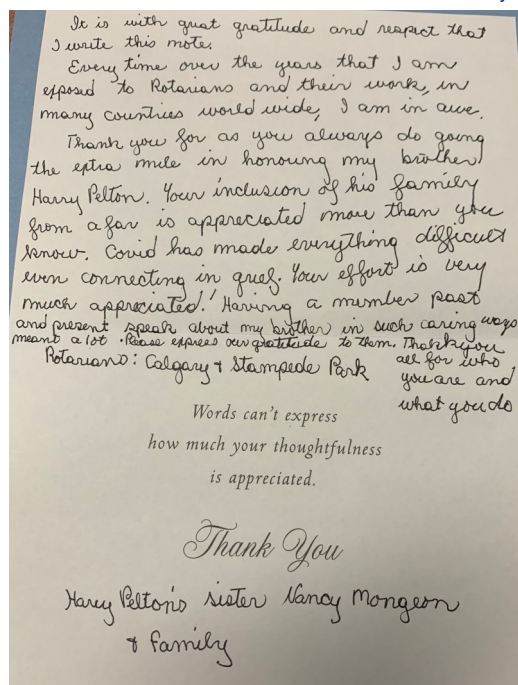 It is with great gratitude and respect that
I write this note.
Every time over the years that I am
exposed to Rotarians and their work, in
many countries world wide, I am in awe.
Thank you for as you always do going
the extra mile in honouring my brother
Harry Pelton. Your inclusion of his family
from afar is appreciated more than you
know. Covid has made everything difficult
even connecting in grief. Your effort is very
much appreciated! Having a member past
and present speak about my brother in such caring ways
meant a lot. Please express our gratitude to them. Thank you
all for who
Rotarians: Calgary & Stampede Park
you are and
what you do
Words can't express
how much your thoughtfulness
is appreciated.
Thank You
Harry Pelton's sister Nancy Mongeon
& family